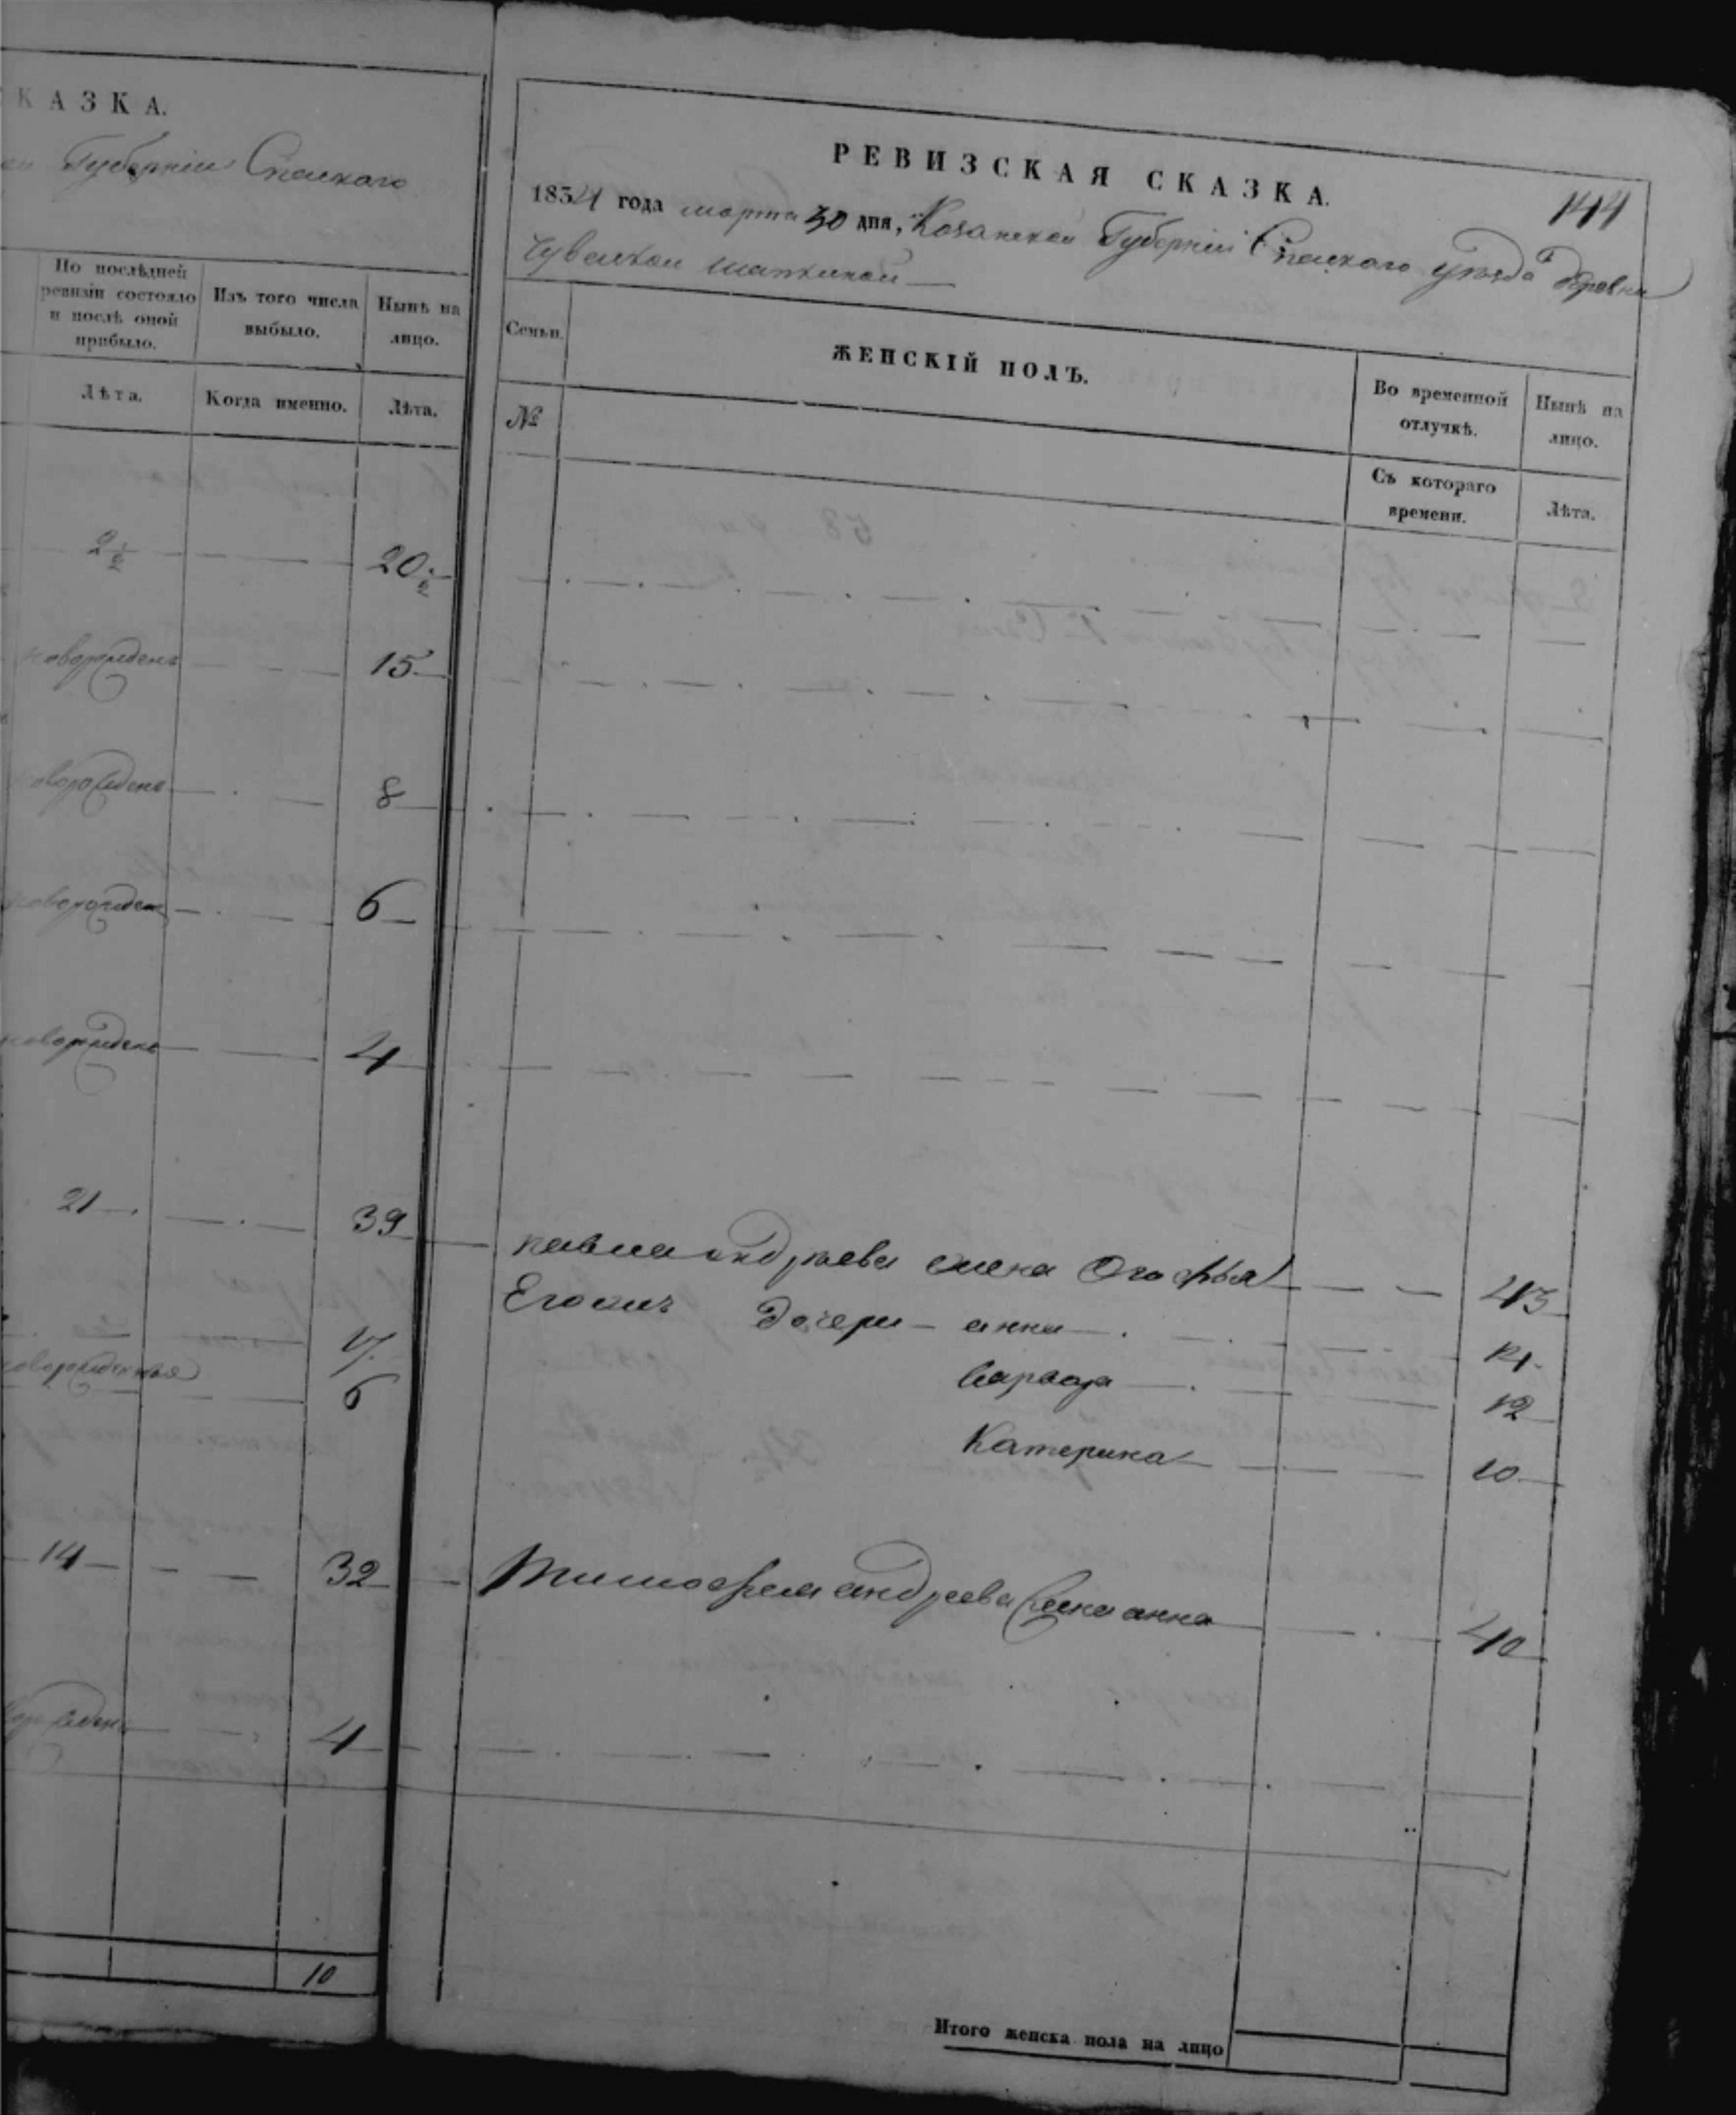 КАЗКА.
Губерніи Спаскаго
По послѣдней ревизіи состояло и послѣ оной прибыло.
Изъ того числа выбыло.
Нынѣ на лицо.
Лѣта.
Когда именно.
Лѣта.
2½ 20½
новорожденъ 15
новорожденъ 8
новорожденъ 6
новорожденъ 4
21 39
17
новорожденная 6
14 32
4
10
РЕВИЗСКАЯ СКАЗКА.
144
1834 года марта 30 дня, Казанской Губерніи Спаскаго уѣзда деревни
Чувашской
Семьи.
ЖЕНСКІЙ ПОЛЪ.
Во временной отлучкѣ.
Нынѣ на лицо.
№
Съ котораго времени.
Лѣта.
павла андреева жена Огофья 43
Еговыхъ дочери анна 14
варвара 12
Катерина 10
Тимофея андреева жена анна 40
Итого женска пола на лицо